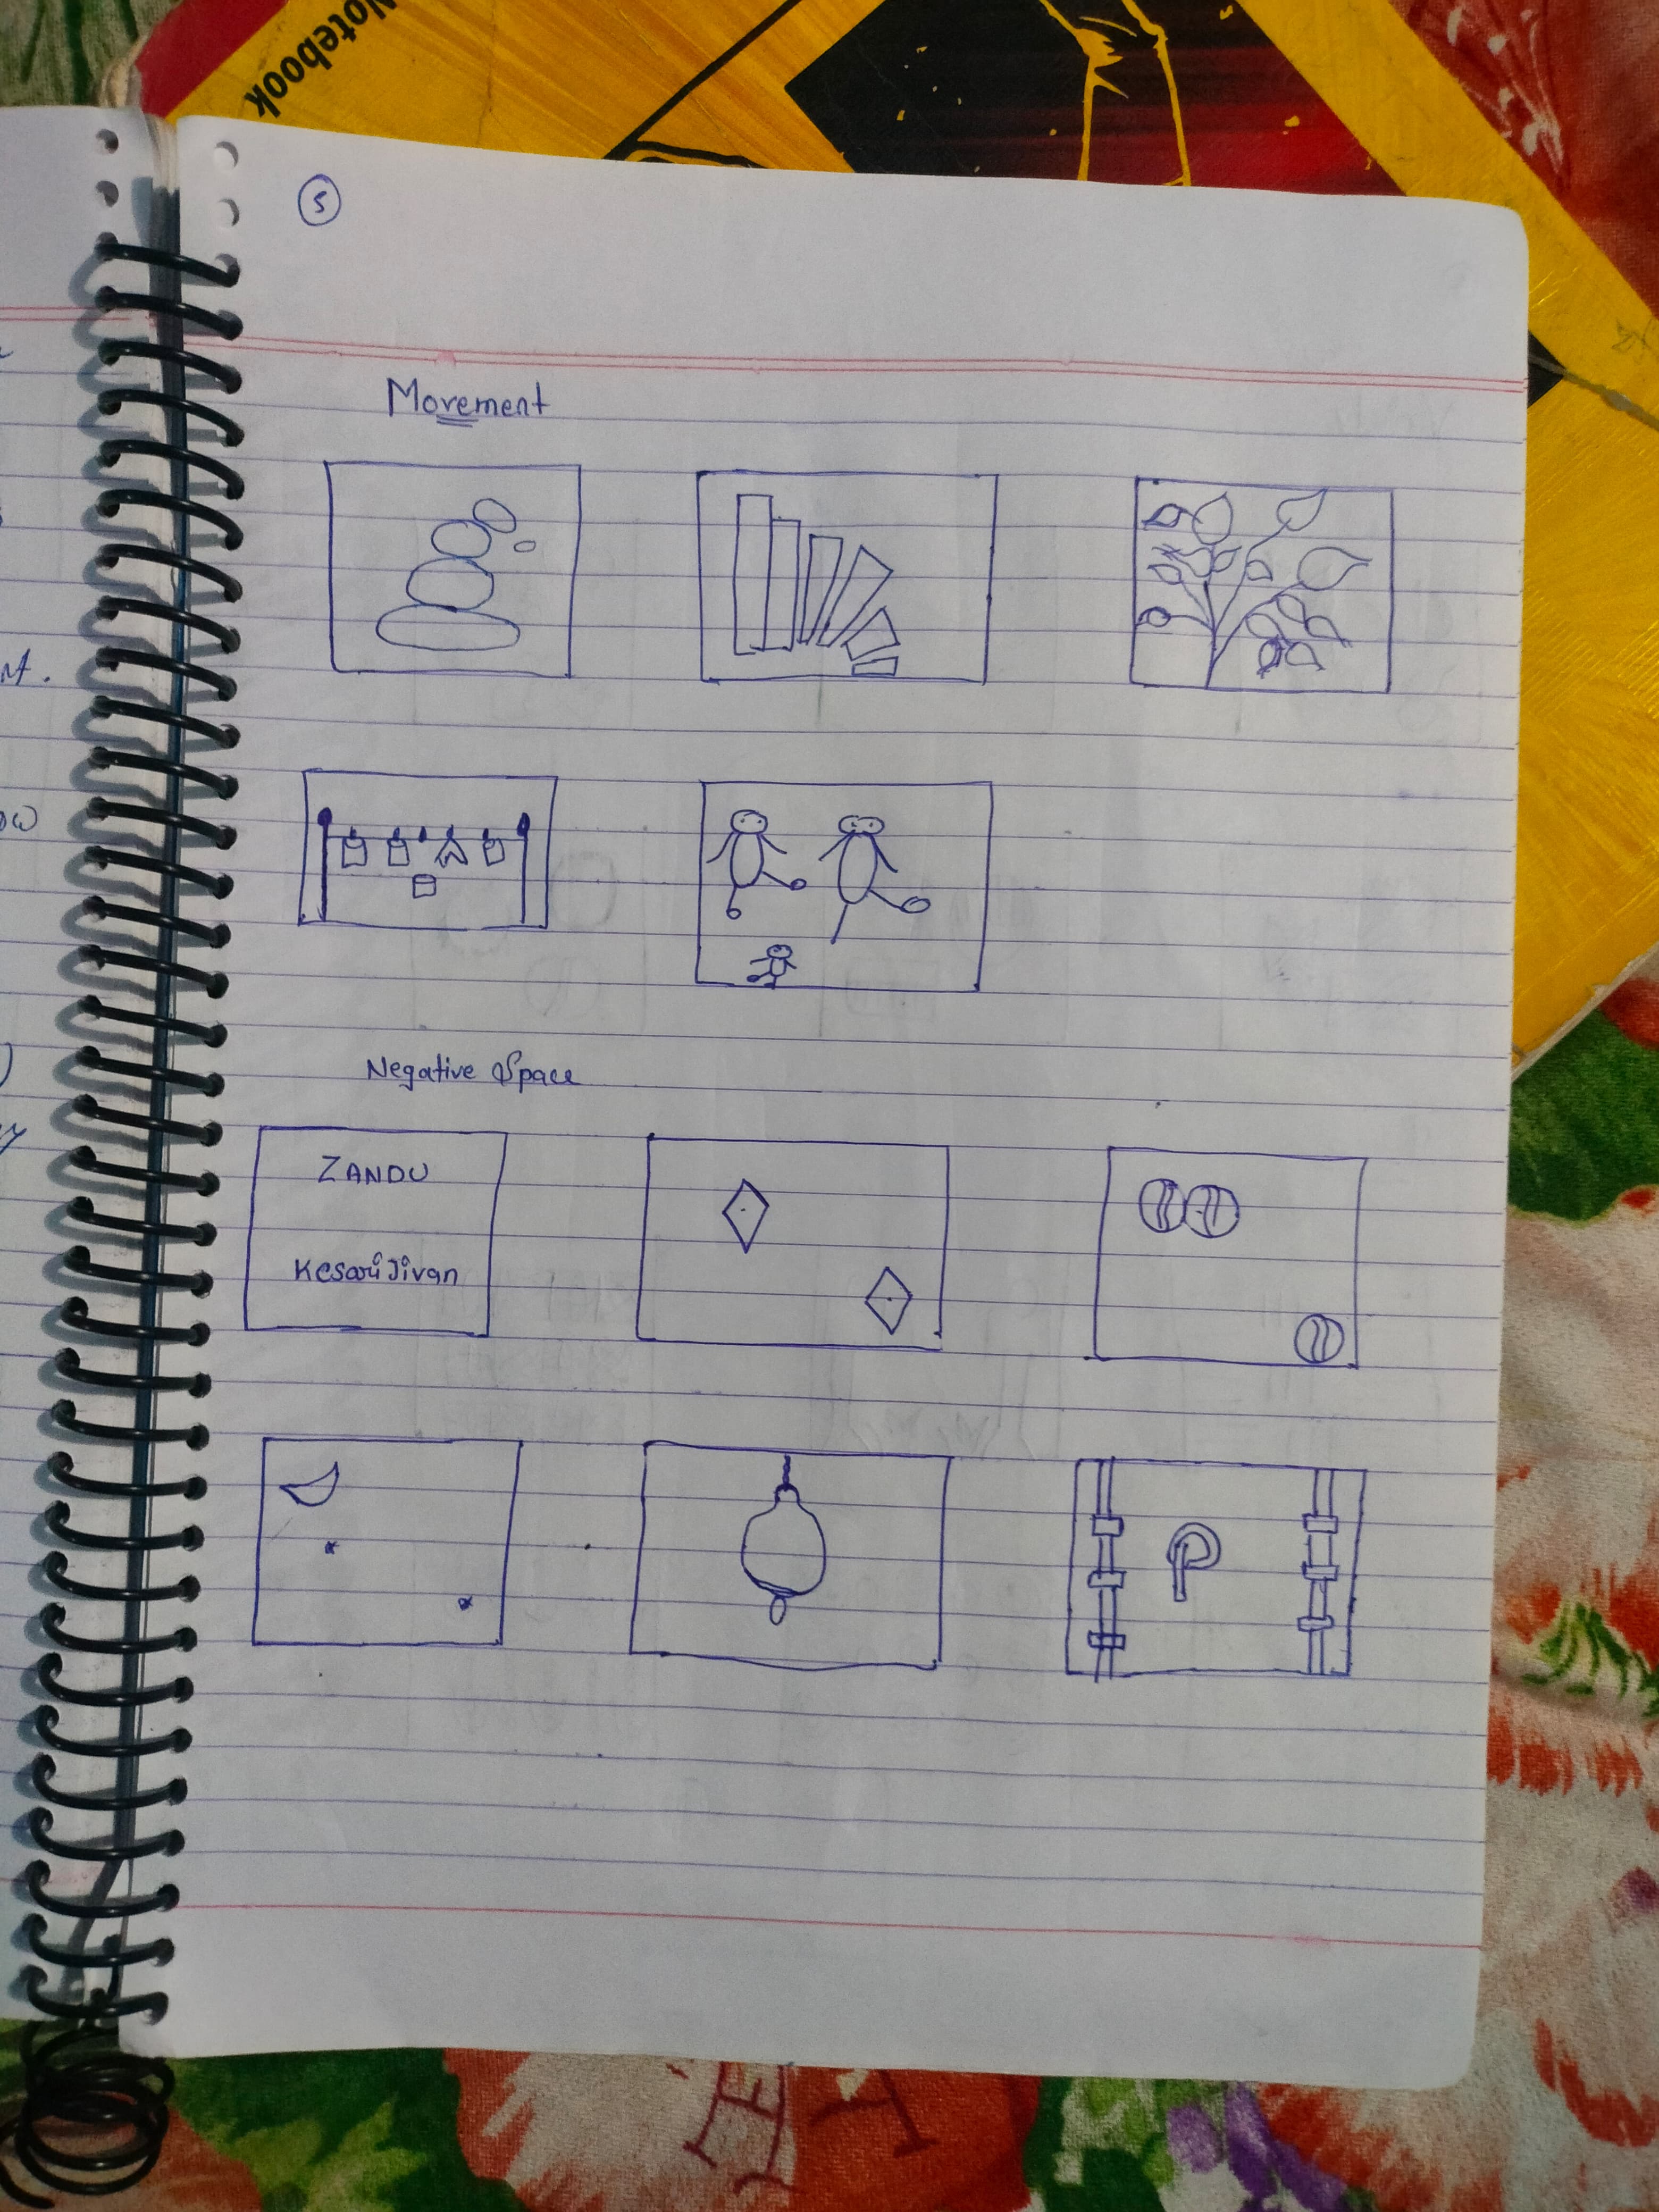 Notebook
5
Movement
Negative Space
ZANDU
Kesari Jivan
P